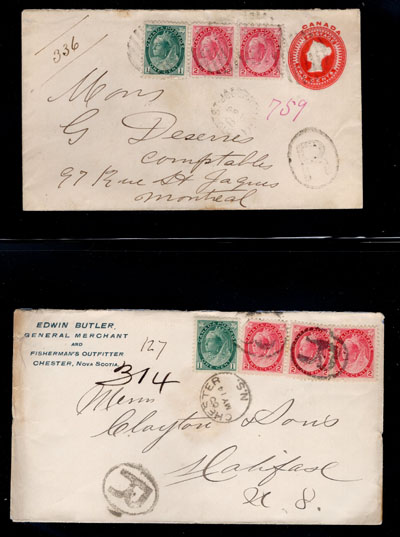 336
CANADA
TWO CENTS
759
R
Mons
G Deserres
Comptables
97 Rue St Jaques
Montreal
EDWIN BUTLER,
GENERAL MERCHANT
AND
FISHERMAN'S OUTFITTER
CHESTER, NOVA SCOTIA
127
314
CHESTER N.S.
MY 14
R
Messrs
Clayton & Sons
Halifax
N. S.
R